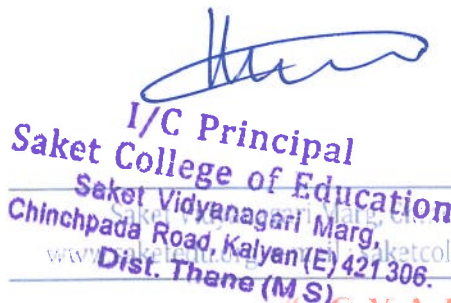 I/C Principal
Saket College of Education
Saket Vidyanagari Marg,
Chinchpada Road, Kalyan (E) 421 306.
Dist. Thane (M S)